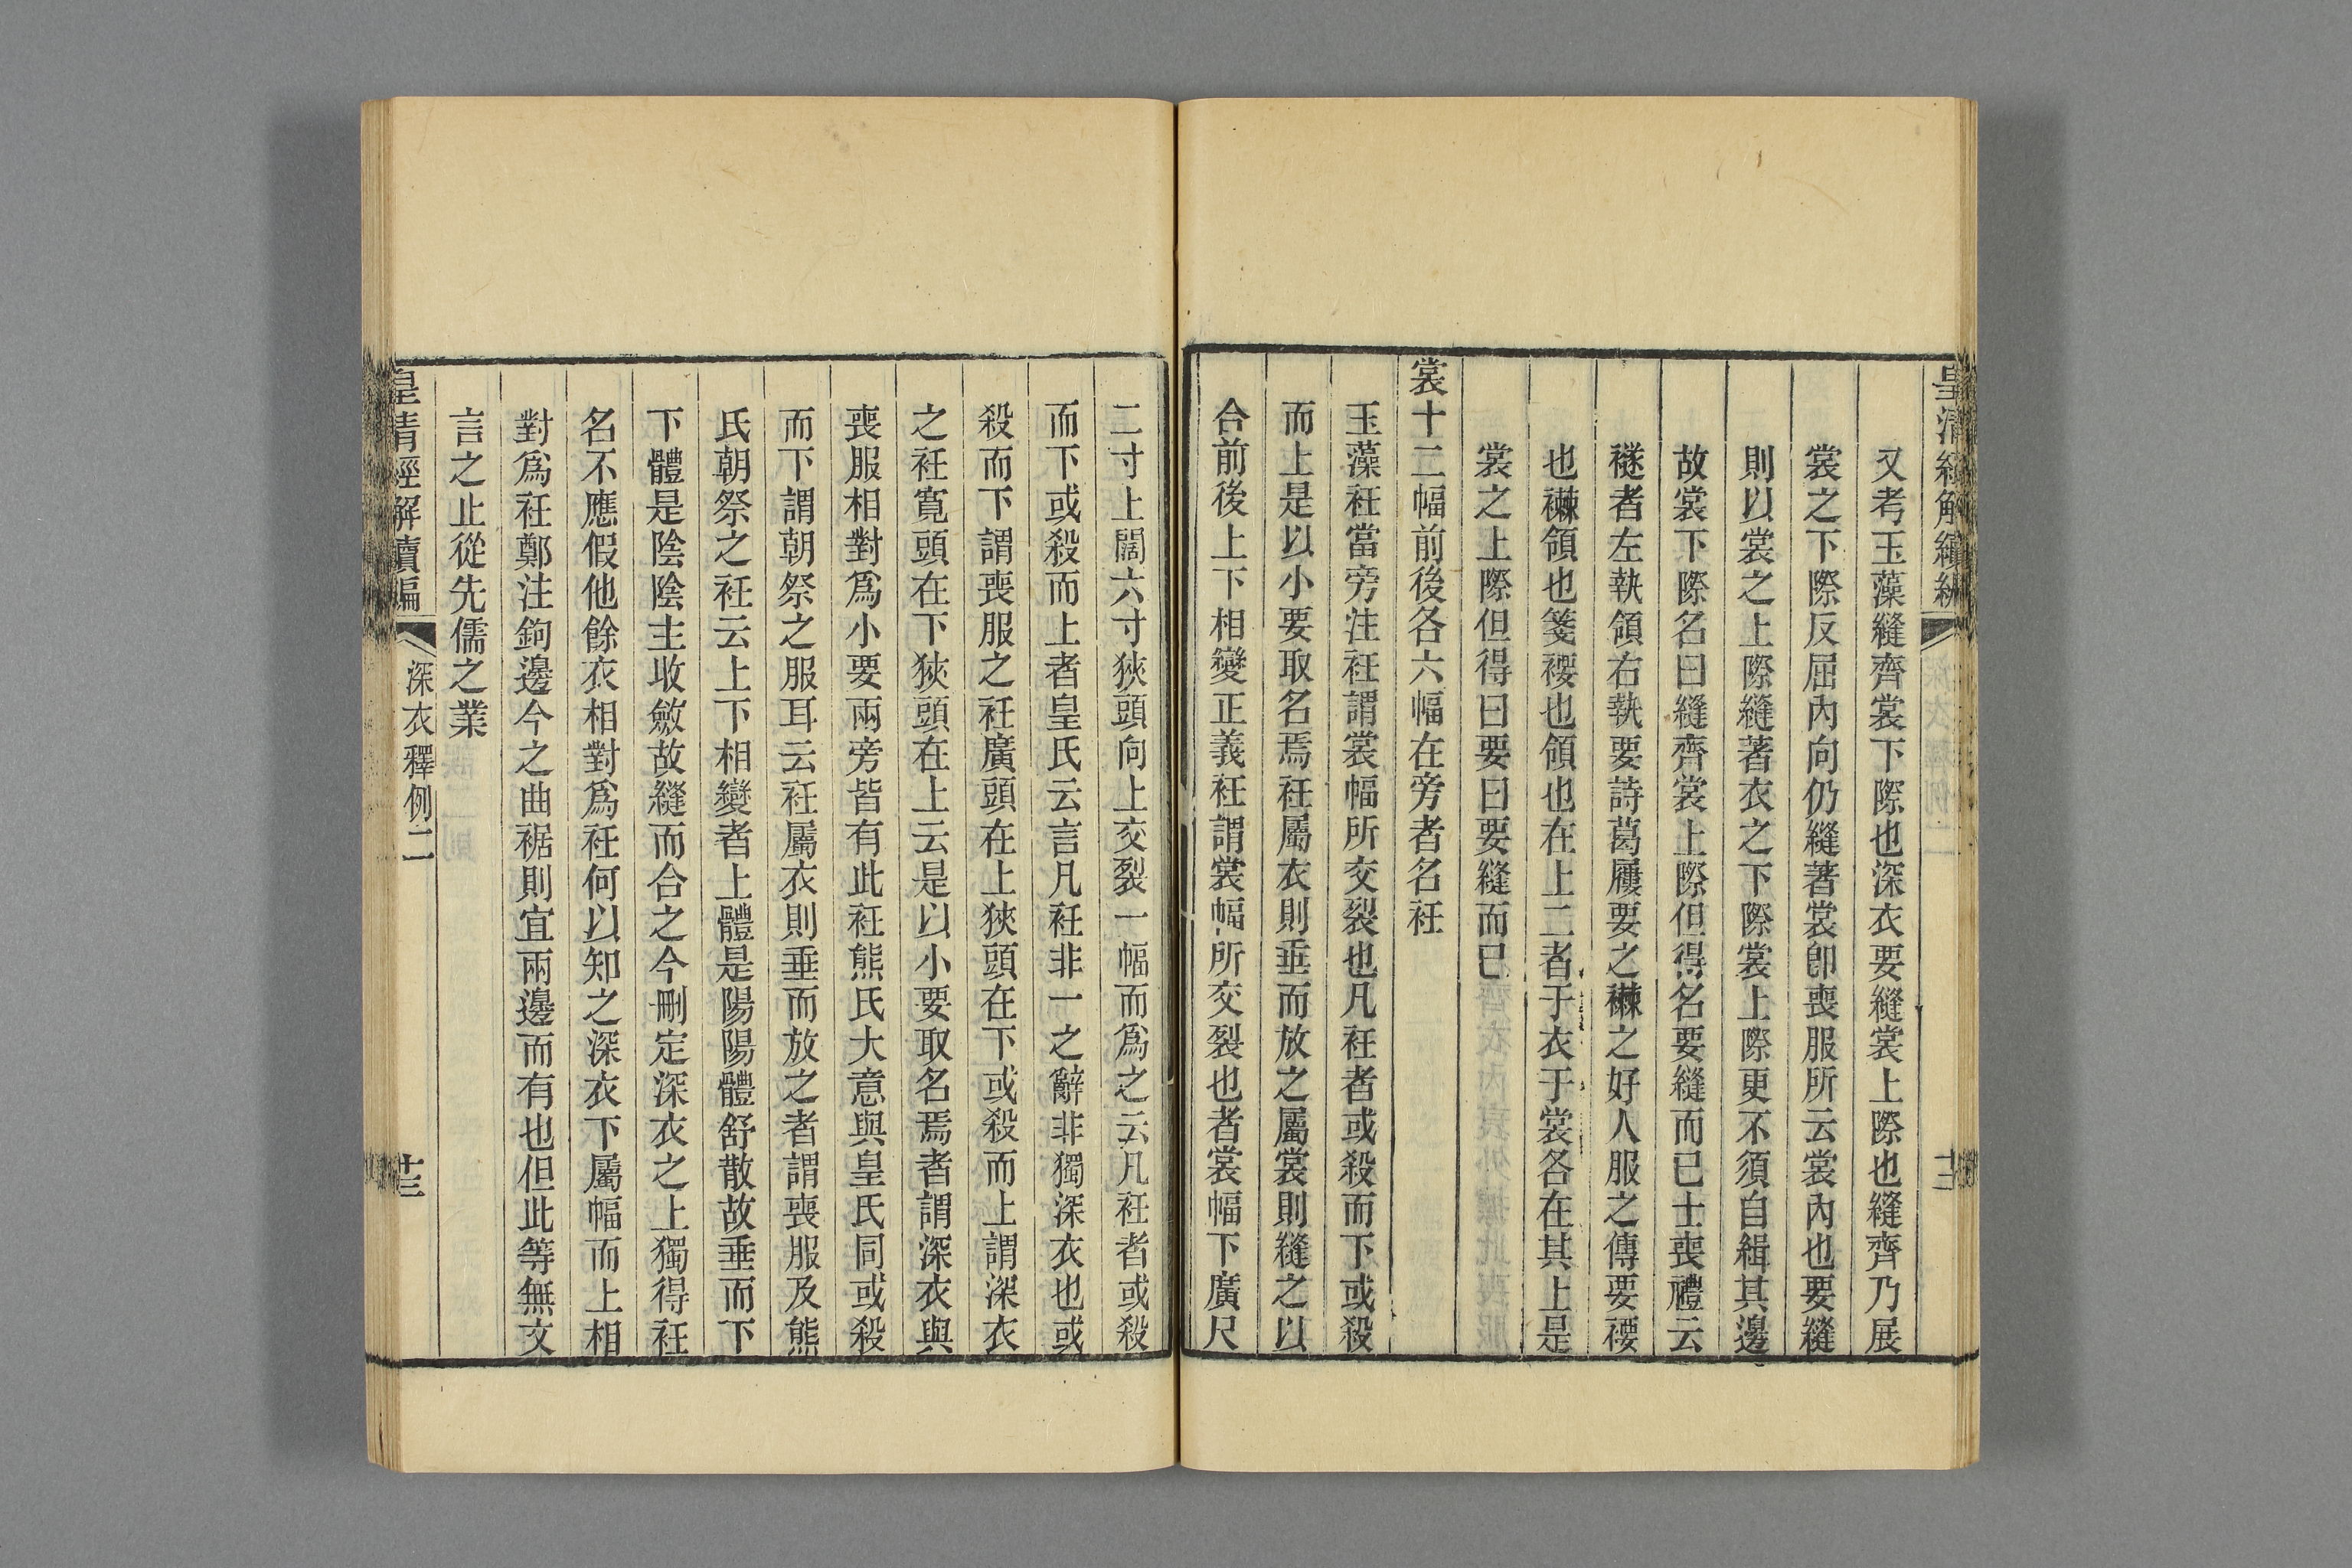 皇清經解續編
又考玉藻縫齊裳下際也深衣要縫裳上際也縫齊乃展
裳之下際反屈內向仍縫著裳卽喪服所云裳內也要縫
則以裳之上際縫著衣之下際裳上際更不須自緝其邊
故裳下際名曰縫齊裳上際但得名要縫而已士喪禮云
襚者左執領右執要詩葛屨要之襋之好人服之傳要䙅
也襋領也箋䙅也領也在上二者于衣于裳各在其上是
裳之上際但得曰要曰要縫而已
裳十二幅前後各六幅在旁者名衽
玉藻衽當旁注衽謂裳幅所交裂也凡衽者或殺而下或殺
而上是以小要取名焉衽屬衣則垂而放之屬裳則縫之以
合前後上下相變正義衽謂裳幅所交裂也者裳幅下廣尺
二寸上闊六寸狹頭向上交裂一幅而爲之云凡衽者或殺
而下或殺而上者皇氏云言凡衽非一之辭非獨深衣也或
殺而下謂喪服之衽廣頭在上狹頭在下或殺而上謂深衣
之衽寬頭在下狹頭在上云是以小要取名焉者謂深衣與
喪服相對爲小要兩旁皆有此衽熊氏大意與皇氏同或殺
而下謂朝祭之服耳云衽屬衣則垂而放之者謂喪服及熊
氏朝祭之衽云上下相變者上體是陽陽體舒散故垂而下
下體是陰陰主收斂故縫而合之今刪定深衣之上獨得衽
名不應假他餘衣相對爲衽何以知之深衣下屬幅而上相
對爲衽鄭注鉤邊今之曲裾則宜兩邊而有也但此等無文
言之止從先儒之業
皇清經解續編
深衣釋例二
十三